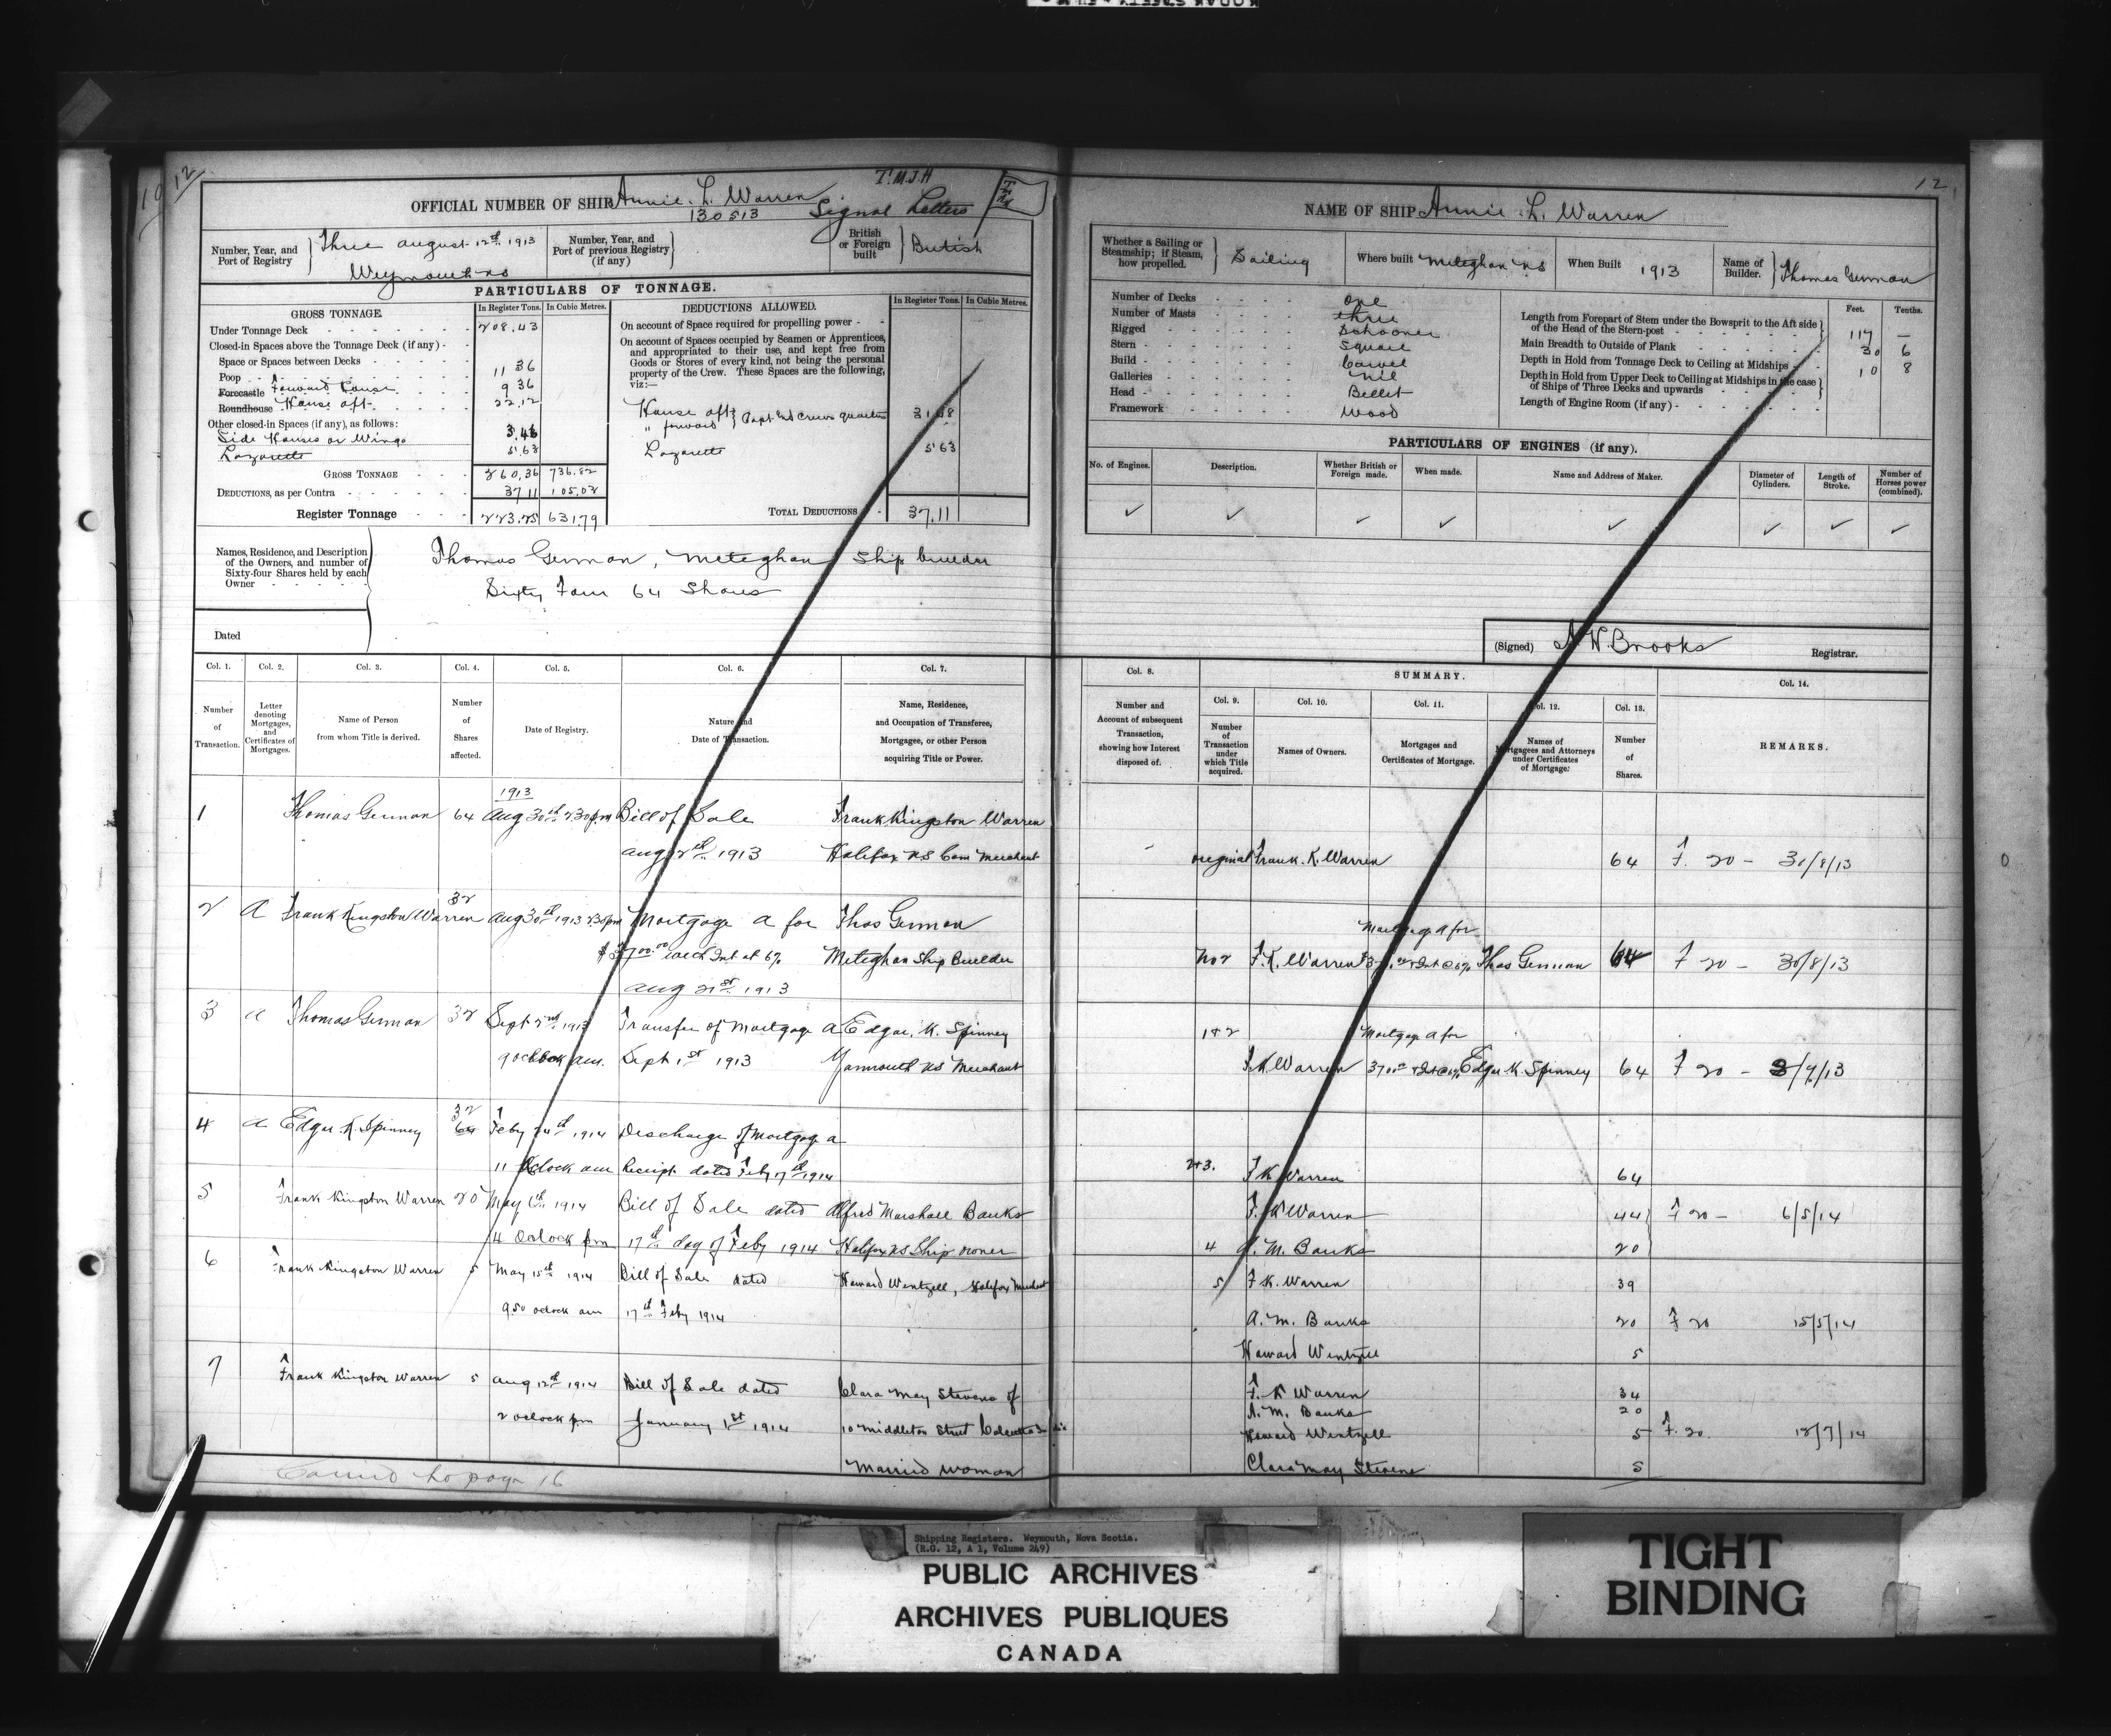 12
T.M.J.H
OFFICIAL NUMBER OF SHIP Annie. L. Warren
130513 Signal Letters
Number, Year, and Port of Registry } Three august 12th 1913
Weymouth NS
Number, Year, and Port of previous Registry (if any) }
British or Foreign built } British
PARTICULARS OF TONNAGE.
GROSS TONNAGE.
In Register Tons. In Cubic Metres.
Under Tonnage Deck 208.43
Closed-in Spaces above the Tonnage Deck (if any)
Space or Spaces between Decks
Poop 11 36
Forecastle Forward house 9 36
Roundhouse House aft 22.12
Other closed-in Spaces (if any), as follows:
Side Houses or Wings 3.46
Lazarette 5.63
GROSS TONNAGE 260.36 736.82
DEDUCTIONS, as per Contra 37 11 105.02
Register Tonnage 223.25 631.79
DEDUCTIONS ALLOWED.
In Register Tons. In Cubic Metres.
On account of Space required for propelling power
On account of Spaces occupied by Seamen or Apprentices, and appropriated to their use, and kept free from Goods or Stores of every kind, not being the personal property of the Crew. These Spaces are the following, viz:—
House aft } Capt and crews quarters 31.48
" forward
Lazarette 5 63
TOTAL DEDUCTIONS 37.11
Names, Residence, and Description of the Owners, and number of Sixty-four Shares held by each Owner
Thomas German, Meteghan Ship builder
Sixty Four 64 Shares
Dated
Col. 1. Col. 2. Col. 3. Col. 4. Col. 5. Col. 6. Col. 7.
Number of Transaction.
Letter denoting Mortgages, and Certificates of Mortgages.
Name of Person from whom Title is derived.
Number of Shares affected.
Date of Registry.
Nature and Date of Transaction.
Name, Residence, and Occupation of Transferee, Mortgagee, or other Person acquiring Title or Power.
1913
1 Thomas German 64 Aug 30th 2.30 pm Bill of Sale Frank Kingston Warren
aug 12th 1913 Halifax NS Com Merchant
32
2 A Frank Kingston Warren Aug 30th 1913 2.30 pm Mortgage A for Thos German
$3700.00 with Int at 6% Meteghan Ship Builder
aug 21st 1913
3 a Thomas German 32 Sept 2nd 1913 Transfer of Mortgage A Edgar. K. Spinney
9 oclock am. Sept 1st 1913 Yarmouth NS Merchant
32
4 a Edgar K. Spinney 64 Feby 24th 1914 Discharge of Mortgage a
11 Oclock am Receipt dated Feby 17th 1914
5 Frank Kingston Warren 20 May 6th 1914 Bill of Sale dated Alfred Marshall Banks
4 Oclock pm 17th day of Feby 1914 Halifax NS Ship owner
6 Frank Kingston Warren 5 May 15th 1914 Bill of Sale dated Howard Wentzell, Halifax Merchant
9.50 oclock am 17th Feby 1914
7 Frank Kingston Warren 5 Aug 12th 1914 Bill of Sale dated Clara May Stevens of
2 oclock pm January 1st 1914 10 Middleton Street Calcutta India
Married woman
Carried to page 16
12
NAME OF SHIP Annie. L. Warren
Whether a Sailing or Steamship; if Steam, how propelled. } Sailing
Where built Meteghan NS
When Built 1913
Name of Builder. } Thomas German
Number of Decks One
Number of Masts three
Rigged Schooner
Stern Square
Build Carvel
Galleries Nil
Head Billet
Framework Wood
Feet. Tenths.
Length from Forepart of Stem under the Bowsprit to the Aft side of the Head of the Stern-post 117 —
Main Breadth to Outside of Plank 30 6
Depth in Hold from Tonnage Deck to Ceiling at Midships 10 8
Depth in Hold from Upper Deck to Ceiling at Midships in the case of Ships of Three Decks and upwards
Length of Engine Room (if any)
PARTICULARS OF ENGINES (if any).
No. of Engines. Description. Whether British or Foreign made. When made. Name and Address of Maker. Diameter of Cylinders. Length of Stroke. Number of Horses power (combined).
(Signed) A. N. Brooks Registrar.
Col. 8. SUMMARY. Col. 14.
Col. 9. Col. 10. Col. 11. Col. 12. Col. 13.
Number and Account of subsequent Transaction, showing how Interest disposed of.
Number of Transaction under which Title acquired.
Names of Owners.
Mortgages and Certificates of Mortgage.
Names of Mortgagees and Attorneys under Certificates of Mortgage.
Number of Shares.
REMARKS.
original Frank. K. Warren 64 F. 20 - 30/8/13
Mortgage A for
No 2 F. K. Warren Int @ 6% Thos German 64 F 20 - 30/8/13
1+2 Mortgage A for
F. K Warren 3700.00 + Int @ 6% Edgar K Spinney 64 F 20 -
2+3. F K Warren 64
F. K Warren 44 F 20 - 6/5/14
4 A. M. Banks 20
5 F K. Warren 39
A. M. Banks 20 F 20 15/5/14
Howard Wentzell 5
F. K Warren 34
A. M. Banks 20
Howard Wentzell 5 F. 20.
Clara May Stevens 5
Shipping Registers. Weymouth, Nova Scotia.
(R.G. 12, A 1, Volume 249)
PUBLIC ARCHIVES
ARCHIVES PUBLIQUES
CANADA
TIGHT
BINDING